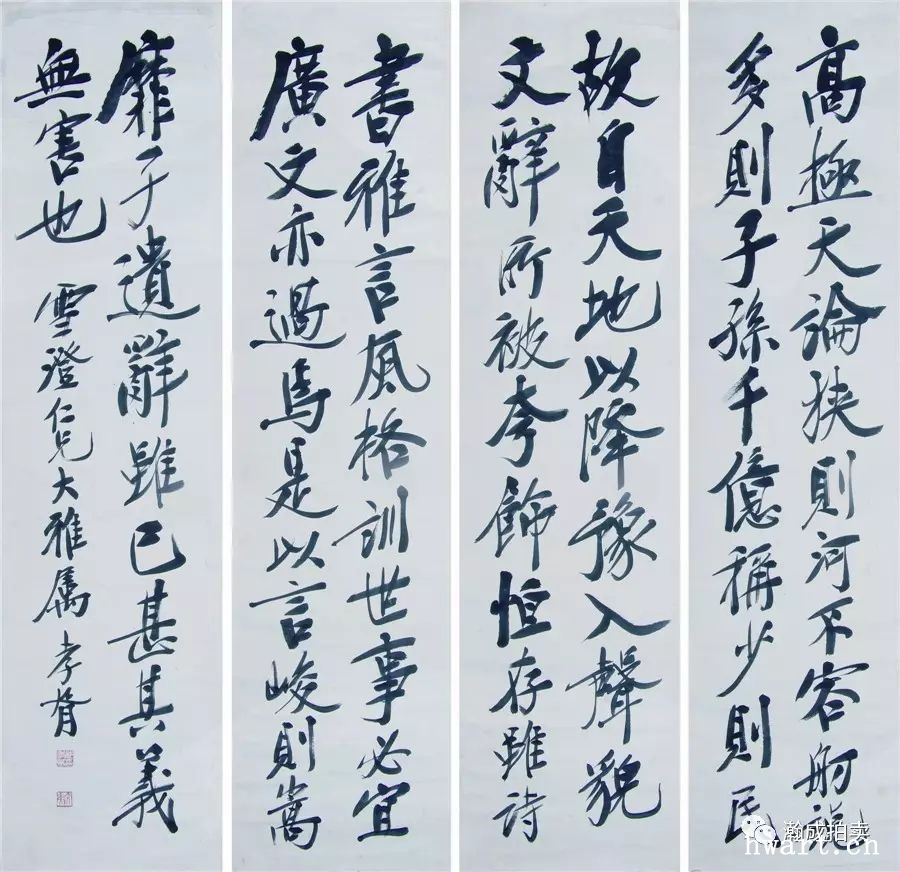 高極天論狹則河不容舠說
多則子孫千億稱少則民
故自天地以降豫入聲貌
文辭所被夸飾恒存雖詩
書雅言風格訓世事必宜
廣文亦過焉是以言峻則嵩
靡孑遺辭雖已甚其義
無害也 雪澄仁兄大雅屬 孝胥
瀚成拍卖
hwart.cn